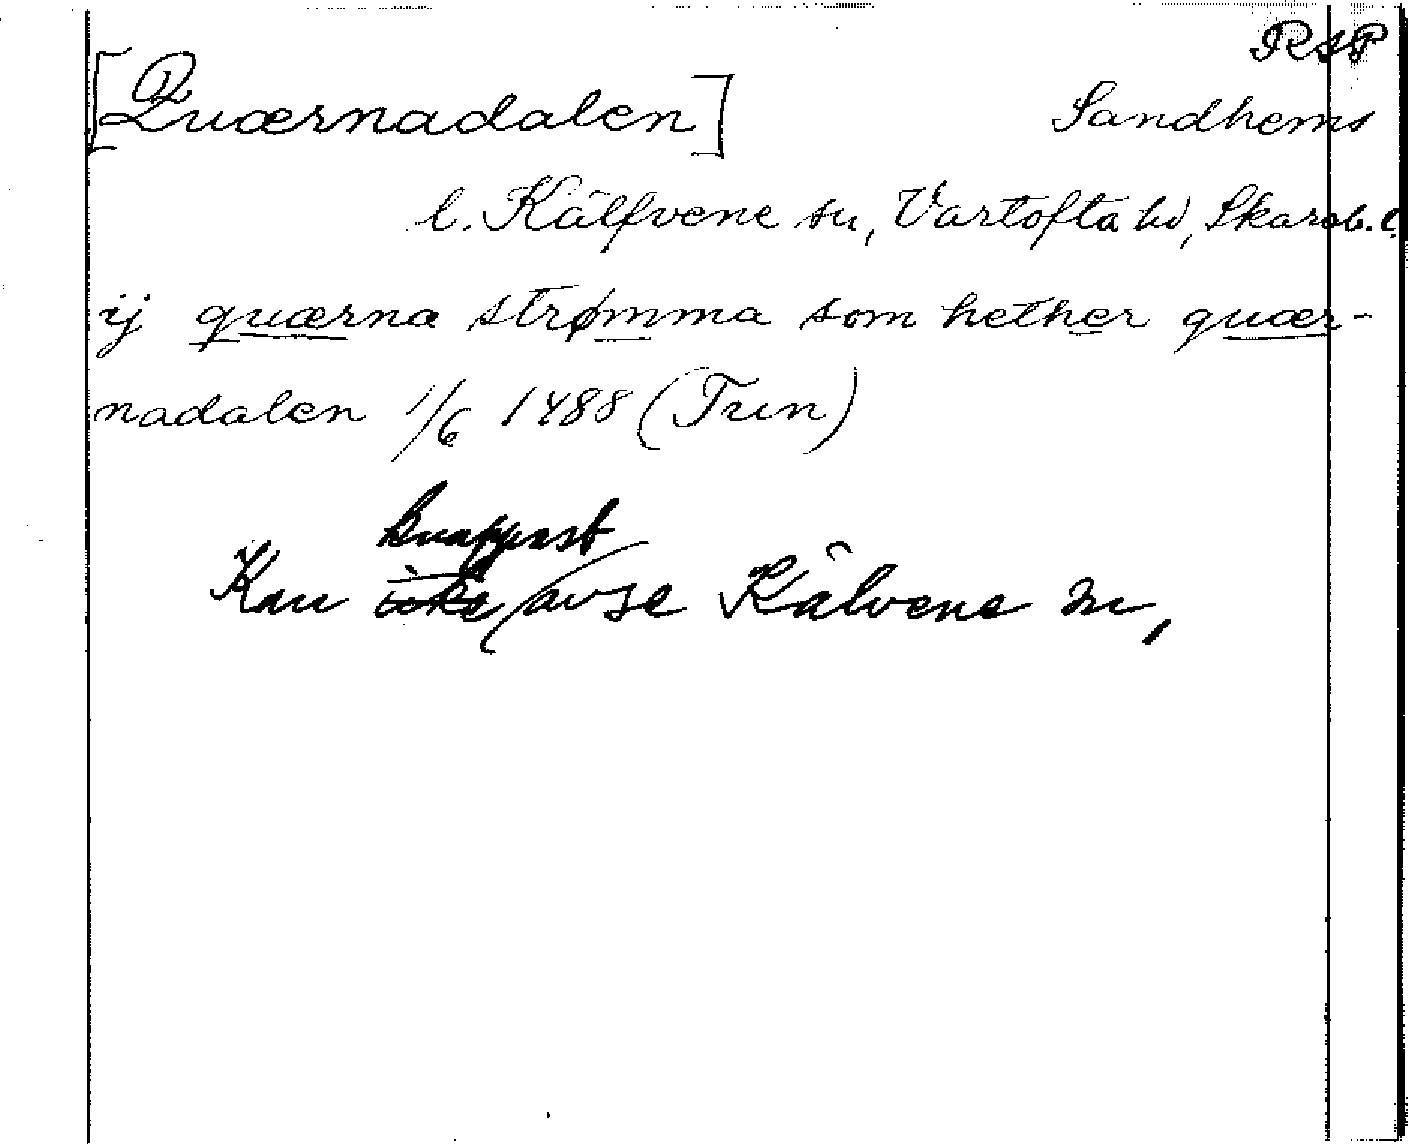 RAP
[Quærnadalen] Sandhems
l. Kälfvene sn, Vartofta hd, Skarab. l.
ij quærna strømma som hether quær-
nadalen 1/6 1488 (Trin)
knappast
Kan icke avse Kälvene sn,